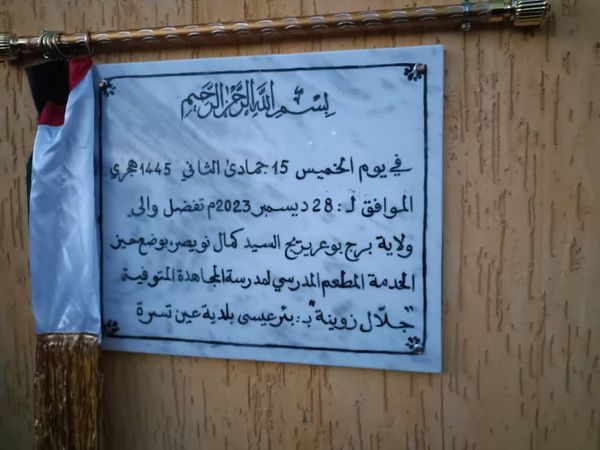 بسم الله الرحمن الرحيم
في يوم الخميس 15 جمادى الثاني 1445 هجري
الموافق لـ : 28 ديسمبر 2023م تفضل والي
ولاية برج بوعريريج السيد كمال نويصر بوضع حيز
الخدمة المطعم المدرسي لمدرسة المجاهدة المتوفية
"جلّال زوينة" بـ : بئر عيسى بلدية عين تسرة